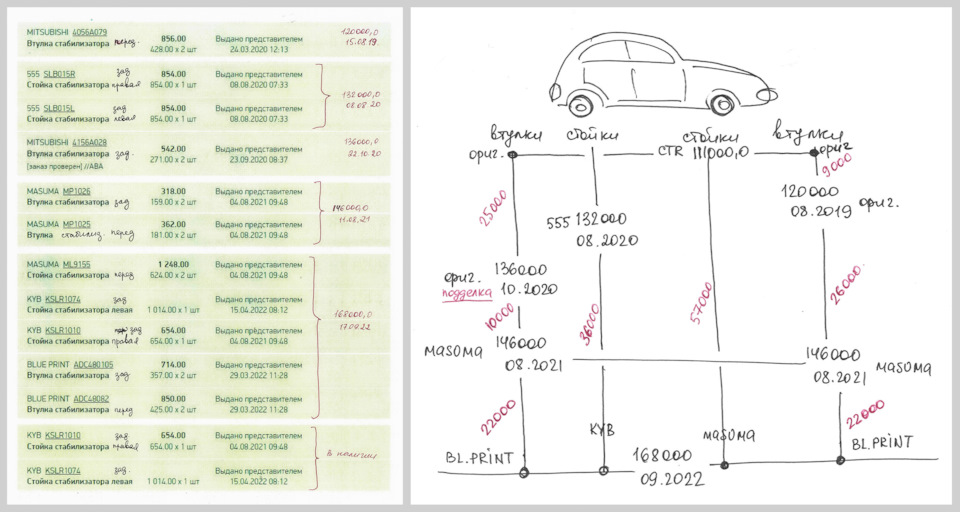 MITSUBISHI 4056A079
Втулка стабилизатора перед.
856.00
428.00 x 2 шт
Выдано представителем
24.03.2020 12:13
120000,0
15.08.19.
555 SLB015R зад
Стойка стабилизатора правая
854.00
854.00 x 1 шт
Выдано представителем
08.08.2020 07:33
555 SLB015L зад
Стойка стабилизатора левая
854.00
854.00 x 1 шт
Выдано представителем
08.08.2020 07:33
132000,0
08.08.20
MITSUBISHI 4156A028
Втулка стабилизатора зад.
[заказ проверен] //АВА
542.00
271.00 x 2 шт
Выдано представителем
23.09.2020 08:37
136000,0
22.10.20
MASUMA MP1026
Втулка стабилизатора зад
318.00
159.00 x 2 шт
Выдано представителем
04.08.2021 09:48
MASUMA MP1025
Втулка стабилиз. перед
362.00
181.00 x 2 шт
Выдано представителем
04.08.2021 09:48
146000,0
11.08.21
MASUMA ML9155
Стойка стабилизатора перед
1 248.00
624.00 x 2 шт
Выдано представителем
04.08.2021 09:48
KYB KSLR1074 зад
Стойка стабилизатора левая
1 014.00 x 1 шт
Выдано представителем
15.04.2022 08:12
KYB KSLR1010 зад
Стойка стабилизатора правая
654.00
654.00 x 1 шт
Выдано представителем
04.08.2021 09:48
BLUE PRINT ADC480105
Втулка стабилизатора зад
714.00
357.00 x 2 шт
Выдано представителем
29.03.2022 11:28
BLUE PRINT ADC48082
Втулка стабилизатора перед
850.00
425.00 x 2 шт
Выдано представителем
29.03.2022 11:28
168000,0
17.09.22
KYB KSLR1010 зад
Стойка стабилизатора правая
654.00
654.00 x 1 шт
Выдано представителем
04.08.2021 09:48
KYB KSLR1074 зад.
Стойка стабилизатора левая
1 014.00 x 1 шт
Выдано представителем
15.04.2022 08:12
в наличии
втулки стойки стойки втулки
ориг. CTR 111000,0 ориг
9000
25000
120000
08.2019 ориг.
555 132000
08.2020
ориг. 136000
подделка 10.2020
26000
57000
10000
36000
MASUMA 146000
08.2021
146000
08.2021 MASUMA
22000
22000
KYB
MASUMA
BL.PRINT
168000
09.2022
BL.PRINT